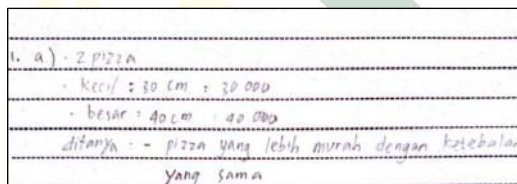 1. a) · 2 pizza
- kecil : 30 cm : 30 000
- besar : 40 cm : 40 000
ditanya : - pizza yang lebih murah dengan ketebalan
yang sama